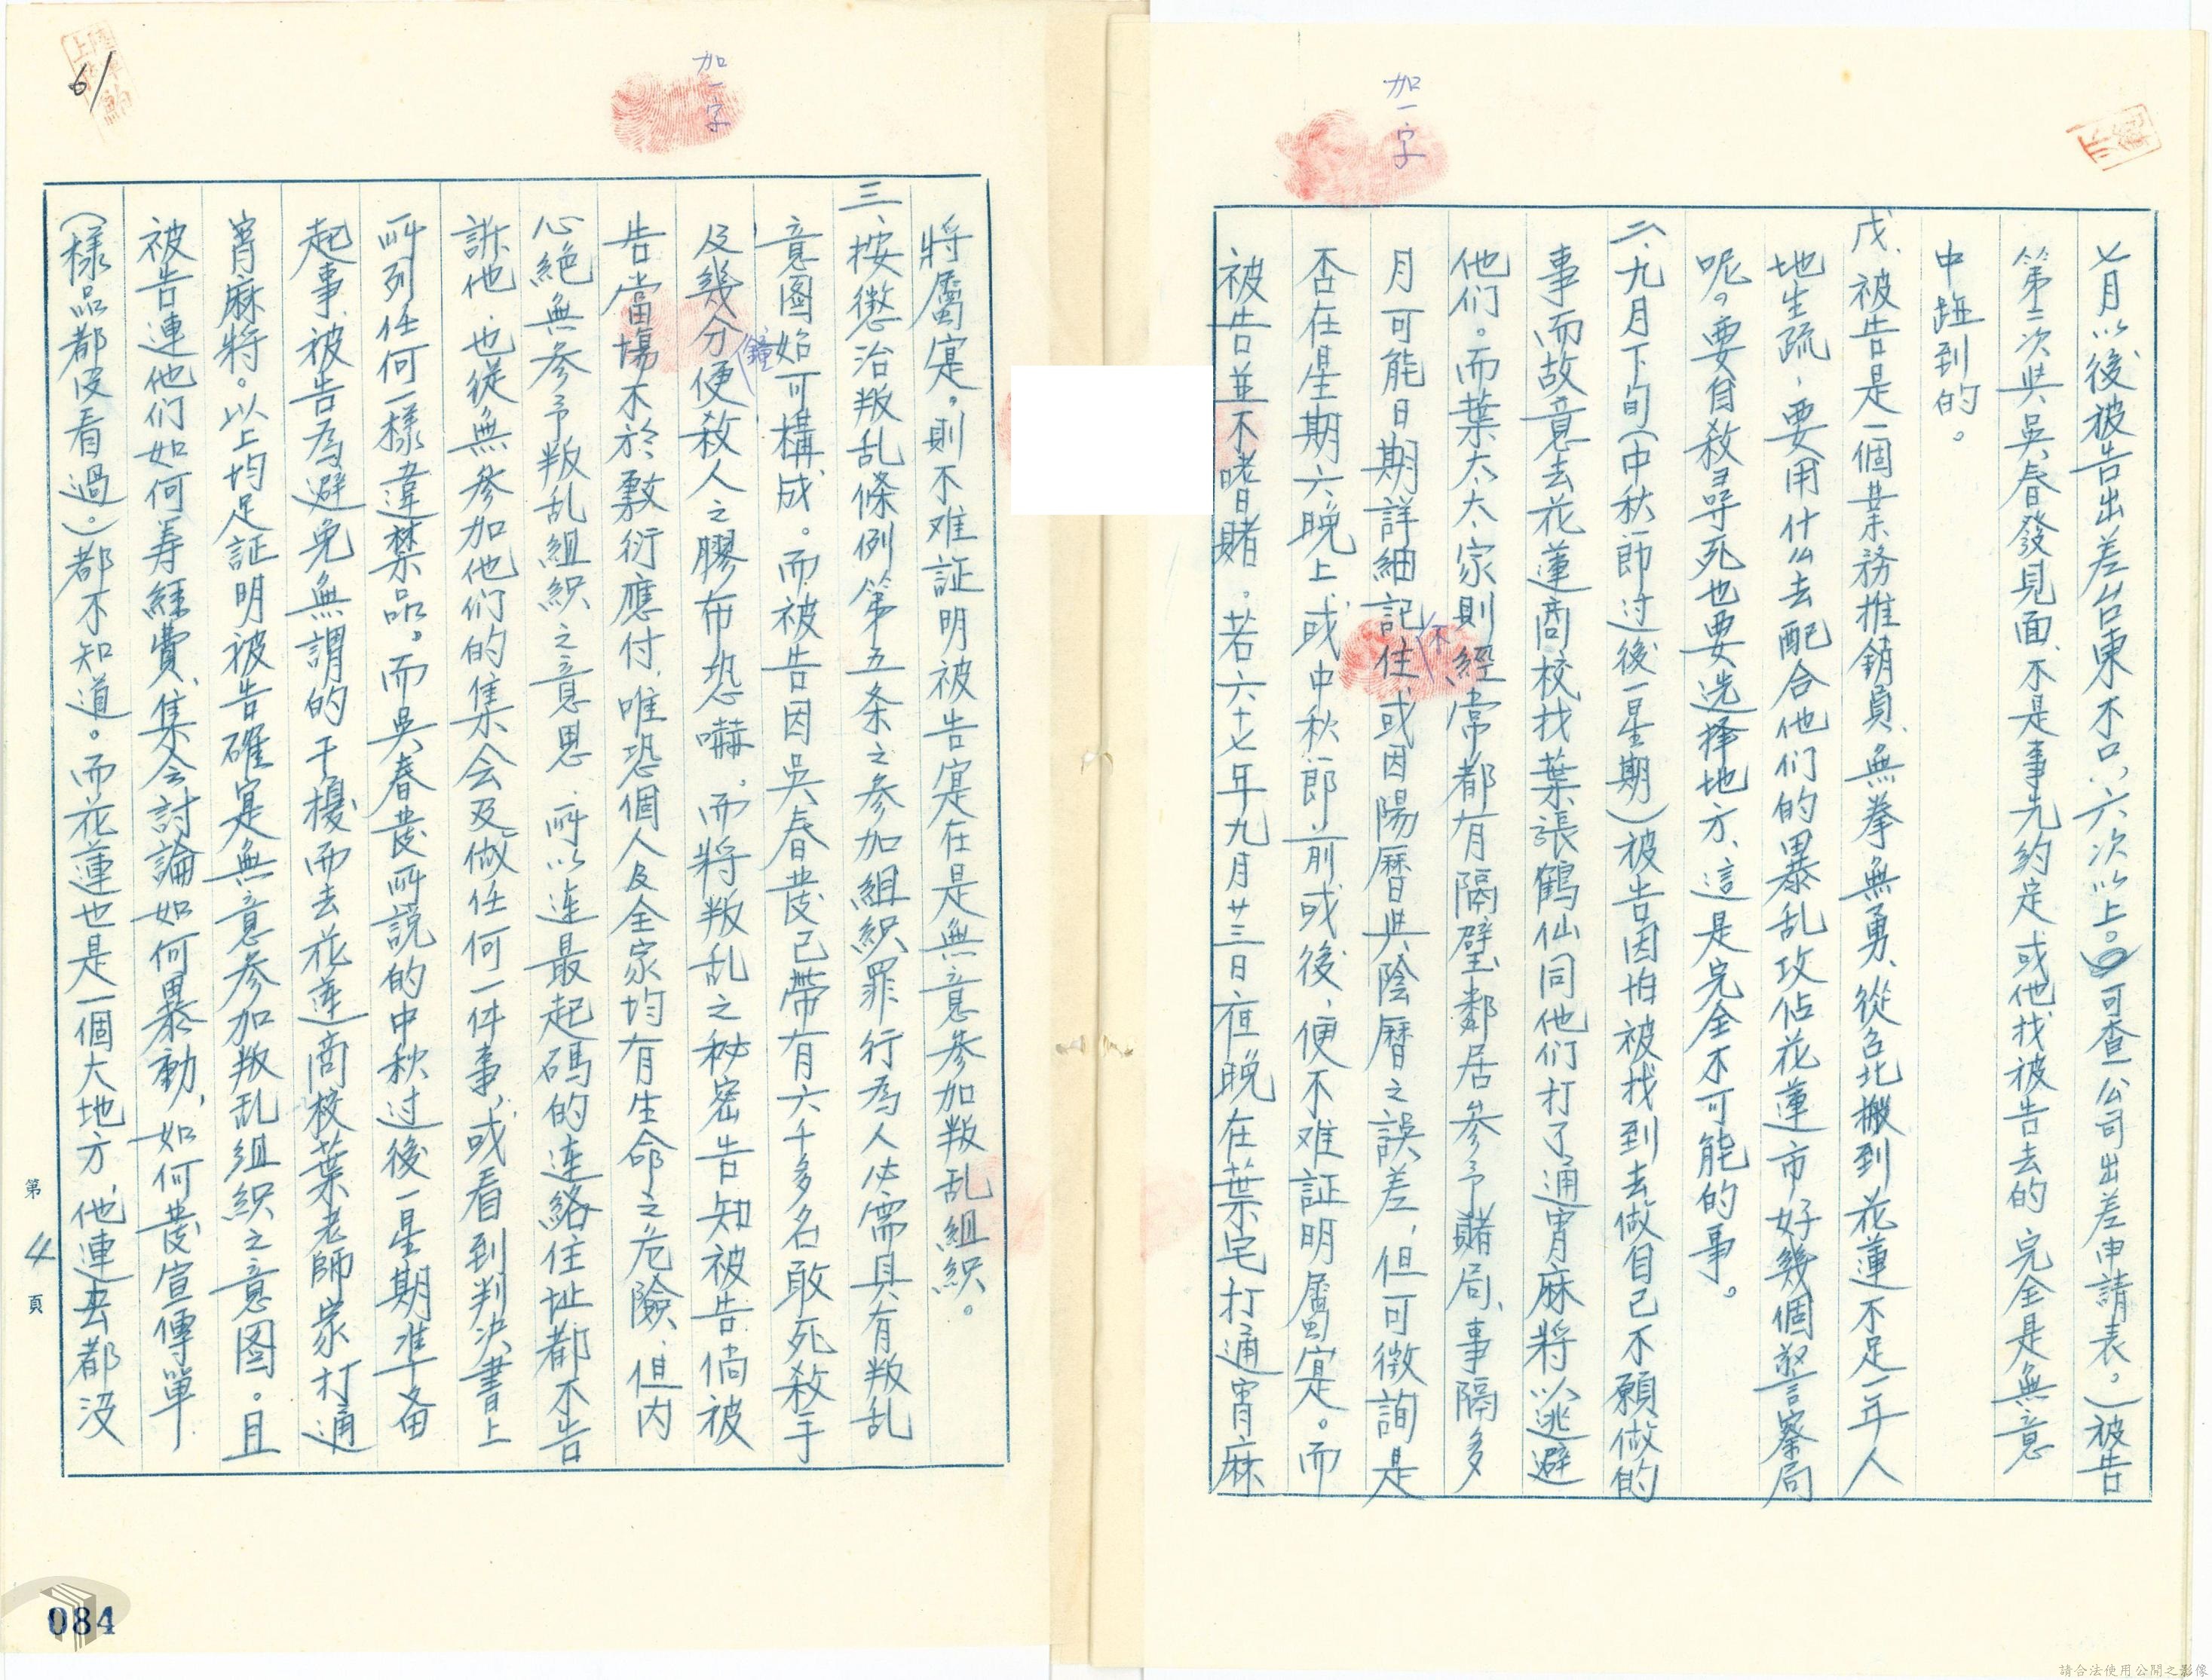 加一字
七月以後被告出差台東不只五、六次以上。可查公司出差申請表。）被告
第二次與吳春發見面、不是事先約定或他找被告去的完全是無意
中踫到的。
戊、被告是一個業務推銷員、無拳無勇、從台北搬到花蓮不足一年人
地生疏、要用什么去配合他们的暴乱攻佔花蓮市好幾個警察局
呢。要自殺尋死也要选择地方、這是完全不可能的事。
二、九月下旬（中秋節过後一星期）被告因怕被找到去做自己不願做的
事而故意去花蓮商校找葉張鶴仙同他们打了通宵麻將以逃避
他们。而葉太太家則不經常都有隔璧鄰居參予賭局、事隔多
月可能日期詳細記住或因陽曆與陰曆之誤差，但可徵詢是
否在星期六晚上、或中秋節前或後，便不难証明屬寔。而
被告並不嗜賭。若六十七年九月廿三日夜晚在葉宅打通宵麻
加一字
將屬寔，則不难証明被告寔在是無意參加叛乱組織。
三、按懲治叛乱條例第五条之參加組織罪行為人必需具有叛乱
意图始可構成。而被告因吳春發已帶有六千多名敢死殺手
及幾分鐘便殺人之膠布恐嚇，而將叛乱之秘密告知被告倘被
告當場不於敷衍應付，唯恐個人及全家均有生命之危險，但內
心絕無參予叛乱組織之意思，所以连最起碼的連絡住址都不告
訴他，也從無參加他们的集会及做任何一件事，或看到判決書上
所列任何一樣違禁品。而吳春發所説的中秋过後一星期準备
起事，被告為避免無謂的干擾而去花蓮商校葉老師家打通
宵麻將。以上均足証明被告確寔無意參加叛乱組織之意图。且
被告連他们如何筹經費，集会討論如何暴動，如何發宣傳單
（樣品都沒看過。）都不知道。而花蓮也是一個大地方，他連去都沒
第4頁
61
084
請合法使用公開之影像